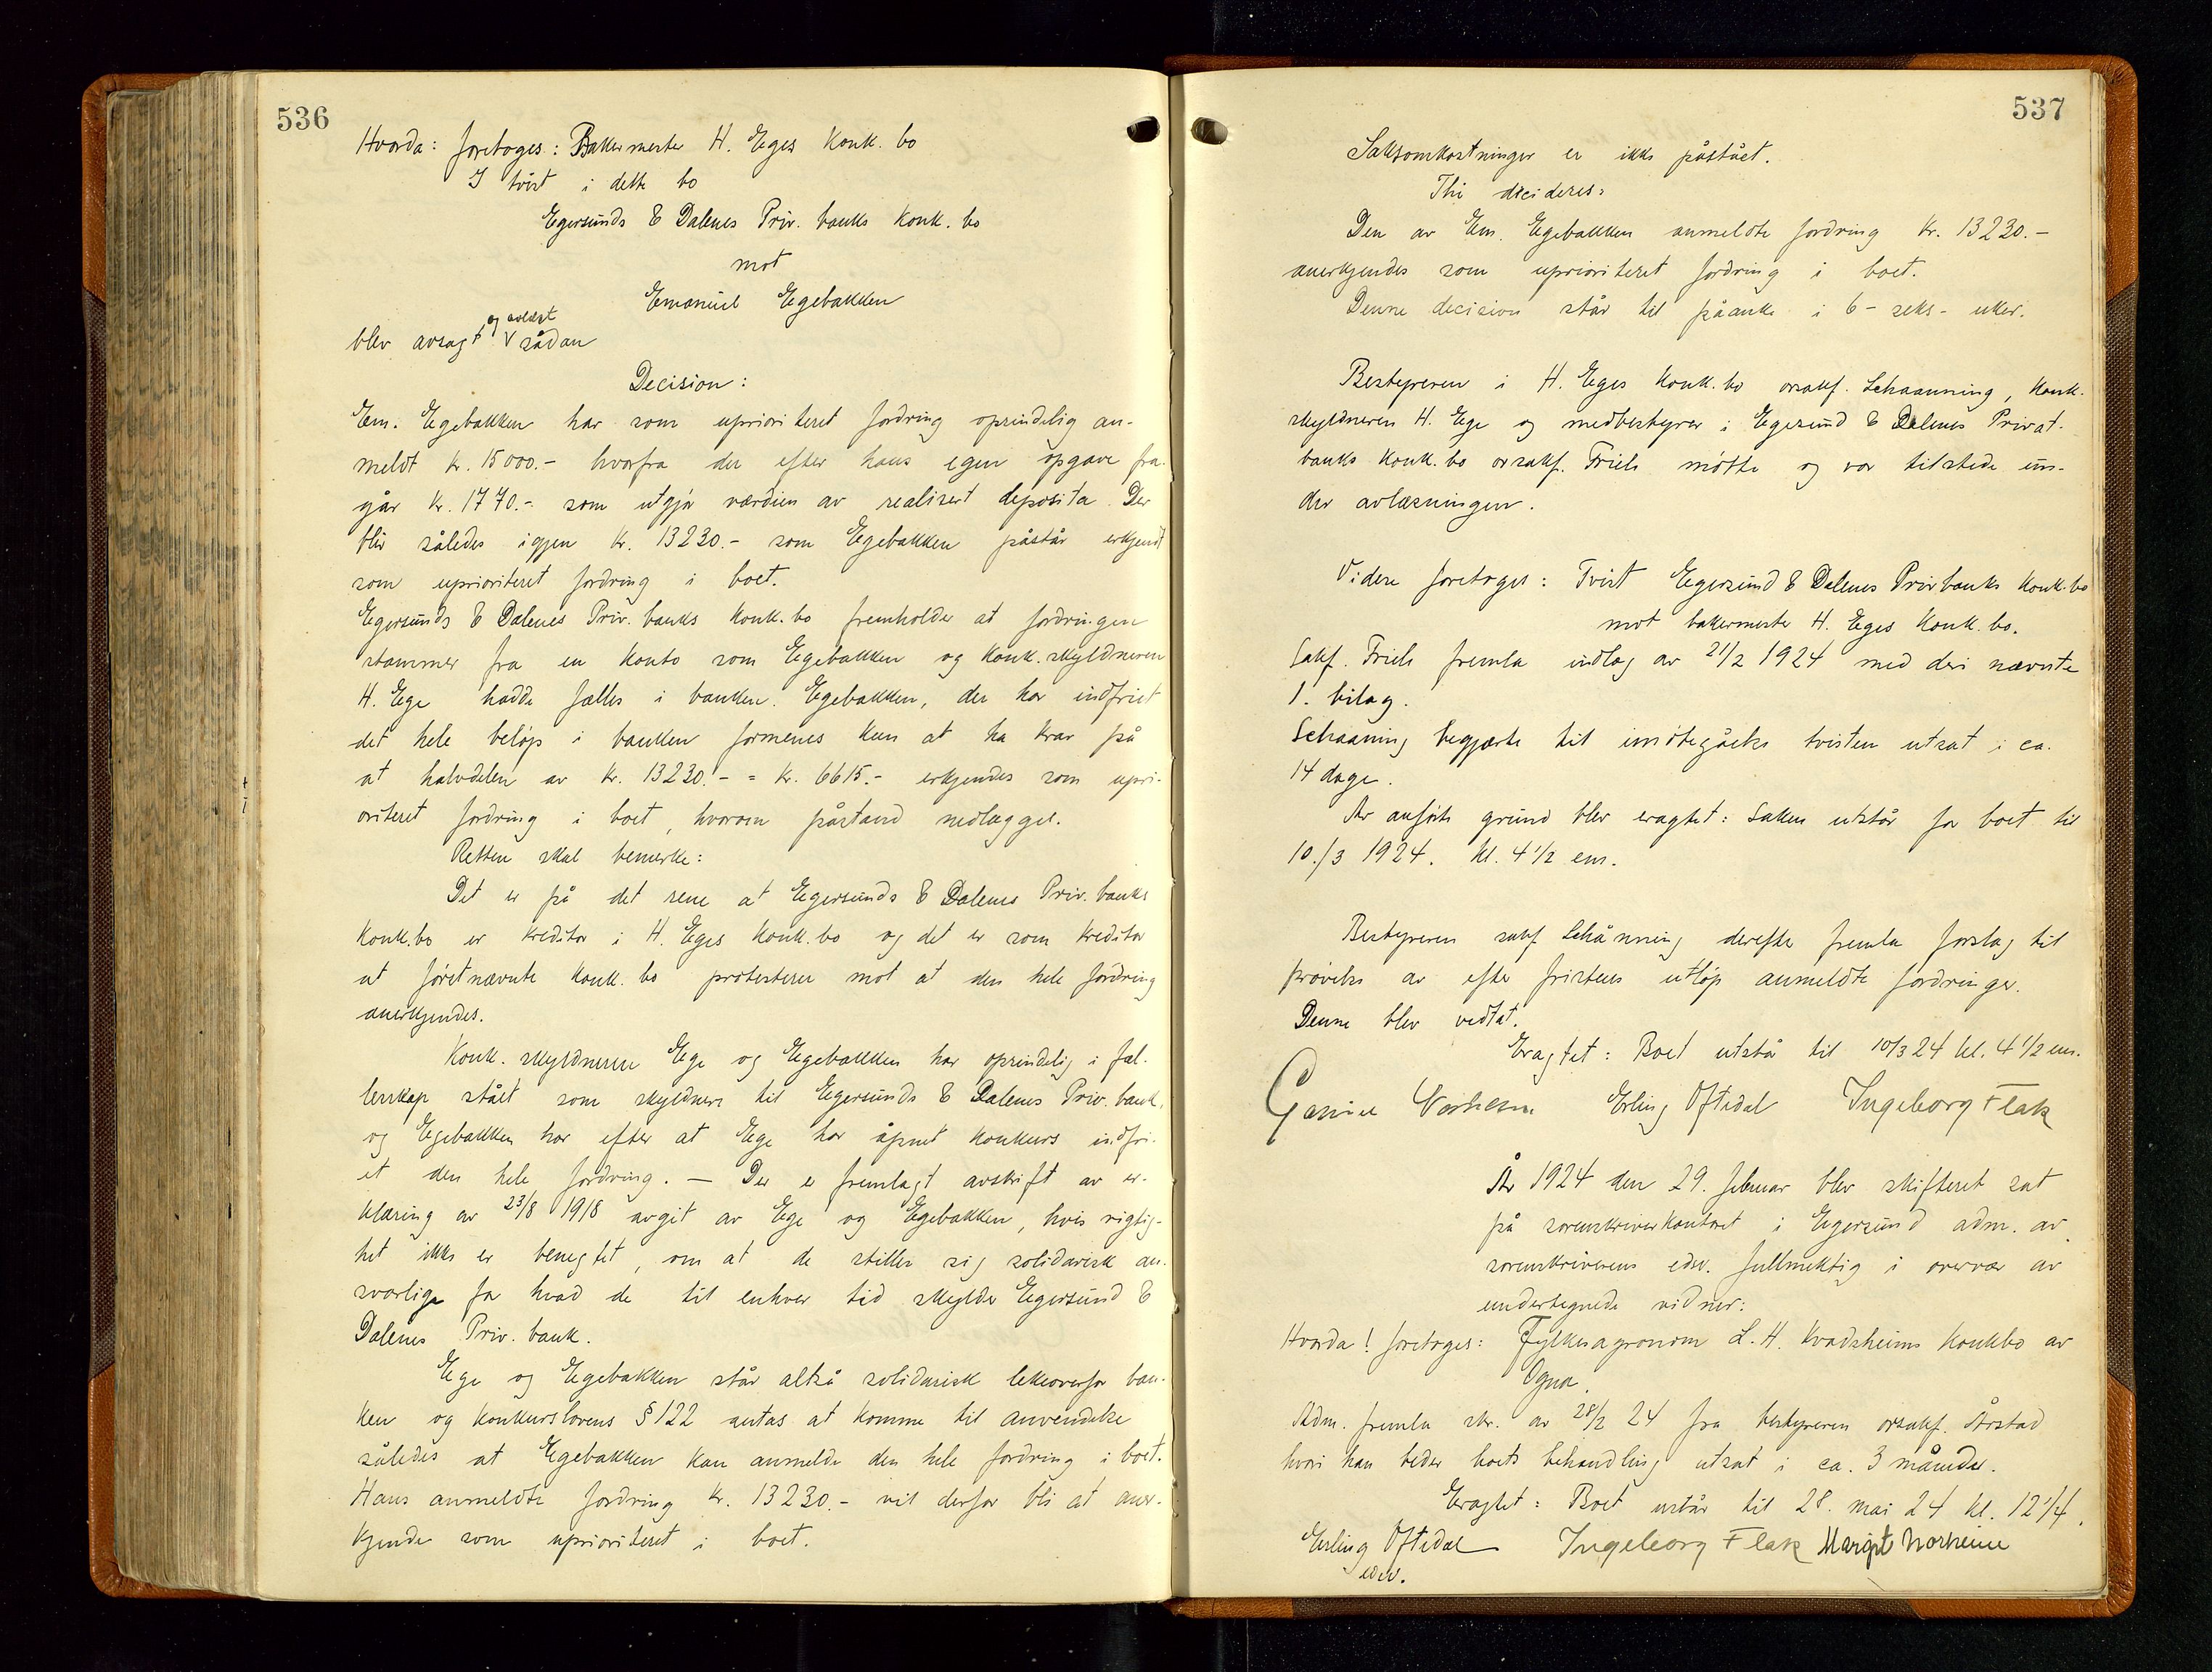 536
Hvorda: foretoges: Bakermester H. Eges Konk. bo
I tvist i dette bo
Egersunds & Dalenes Priv. banks Konk. bo
mot
Emanuel Egebakken
og avlæst
blev avsagt V sådan
Decision:
Em. Egebakken har som uprioritert fordring oprindelig an-
meldt kr. 15000.- hvorfra der efter hans egen opgave fra-
går kr. 1770.- som utgjør værdien av realisert deposita. Der
blir således igjen kr. 13230.- som Egebakken påstår erkjendt
som uprioriteret fordring i boet.
Egersunds & Dalenes Priv. banks Konk. bo fremholder at fordringen
stammer fra en konto som Egebakken og Konk. skyldneren
H. Ege hadde fælles i banken. Egebakken, der har indfriet
det hele beløp i banken formenes kun at ha krav på
at halvdelen av kr. 13230.- = kr. 6615.- erkjendes som upri-
oriteret fordring i boet, hvorom påstand nedlægges.
Retten skal bemerke:
Det er på det rene at Egersunds & Dalenes Priv. banks
Konk.bo er kreditor i H. Eges Konk. bo og det er som kreditor
at førstnævnte Konk. bo protesterer mot at den hele fordring
anerkjendes.
Konk. skyldneren Ege og Egebakken har oprindelig i fæl-
lesskap stået som skyldnere til Egersunds & Dalenes Priv. bank,
og Egebakken har efter at Ege har åpnet konkurs indfri-
et den hele fordring. — Der er fremlagt avskrift av er-
klæring av 23/8 1918 avgit av Ege og Egebakken, hvis rigtig-
het ikke er benegtet, om at de stiller sig solidarisk an-
svarlige for hvad de til enhver tid skylder Egersund &
Dalenes Priv. bank.
Ege og Egebakken står altså solidarisk likeoverfor ban-
ken og konkurslovens § 122 antas at komme til anvendelse
således at Egebakken kan anmelde den hele fordring i boet.
Hans anmeldte fordring kr. 13230.- vil derfor bli at aner-
kjende som uprioriteret i boet.
537
Saksomkostninger er ikke påstået.
Thi decideres:
Den av Em. Egebakken anmeldte fordring kr. 13230.-
anerkjendes som uprioriteret fordring i boet.
Denne decision står til påanke i 6 - seks - uker.
Bestyreren i H. Eges Konk. bo orsakf. Schaanning, Konk.
skyldneren H. Ege og medbestyrer i Egersund & Dalenes Privat-
banks Konk. bo orsakf. Friels møtte og var tilstede un-
der avlæsningen.
Videre foretoges: Tvist Egersund & Dalenes Privbanks Konk. bo
mot bakermester H. Eges Konk. bo.
Sakf. Friels fremla indlæg av 21/2 1924 med deri nævnte
1. bilag.
Schaaning begjærte til imøtegåelse tvisten utsat i ca.
14 dage.
Av anførte grund blev eragtet: Saken utstår for boet til
10./3 1924. kl. 4 1/2 em.
Bestyreren sakf. Schånning derefter fremla forslag til
prøvelse av efter fristens utløp anmeldte fordringer.
Denne blev vedtat.
Eragtet: Boet utstår til 10/3 24 kl. 4 1/2 em.
Erling Oftedal Ingeborg Flak
År 1924 den 29. februar blev skifteret sat
på sorenskriverkontoret i Egersund adm. av
sorenskriverens edsv. fullmektig i overvær av
undertegnede vidner:
Hvorda! foretoges: Fylkesagronom L. H. Kvadsheims Konkbo av
Ogna.
Adm. fremla skr. av 28/2 24 fra bestyreren orsakf. Årstad
hvori han beder boets behandling utsat i ca. 3 måneder.
Eragtet: Boet utstår til 28. mai 24 kl. 12 1/4.
Erling Oftedal Ingeborg Flak Margit Norheim
edsv.